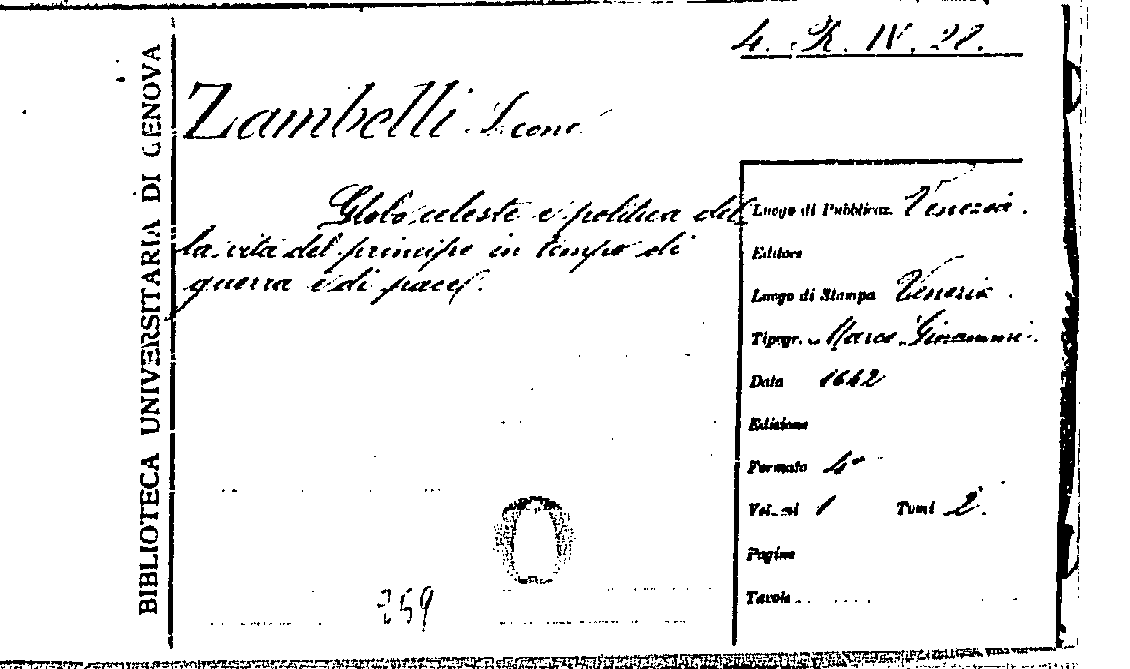 4. R. IV. 22.
BIBLIOTECA UNIVERSITARIA DI GENOVA
Zambelli Leone
Globo celeste e politica del
la vita del principe in tempo di
guerra e di pace.
Luogo di Pubblicaz. Venezia.
Editore
Luogo di Stampa Venezia.
Tipogr. Marco Ginammi.
Data 1642
Edizione
Formato 4°
Volumi 1 Tomi 2.
Pagine
Tavole
259